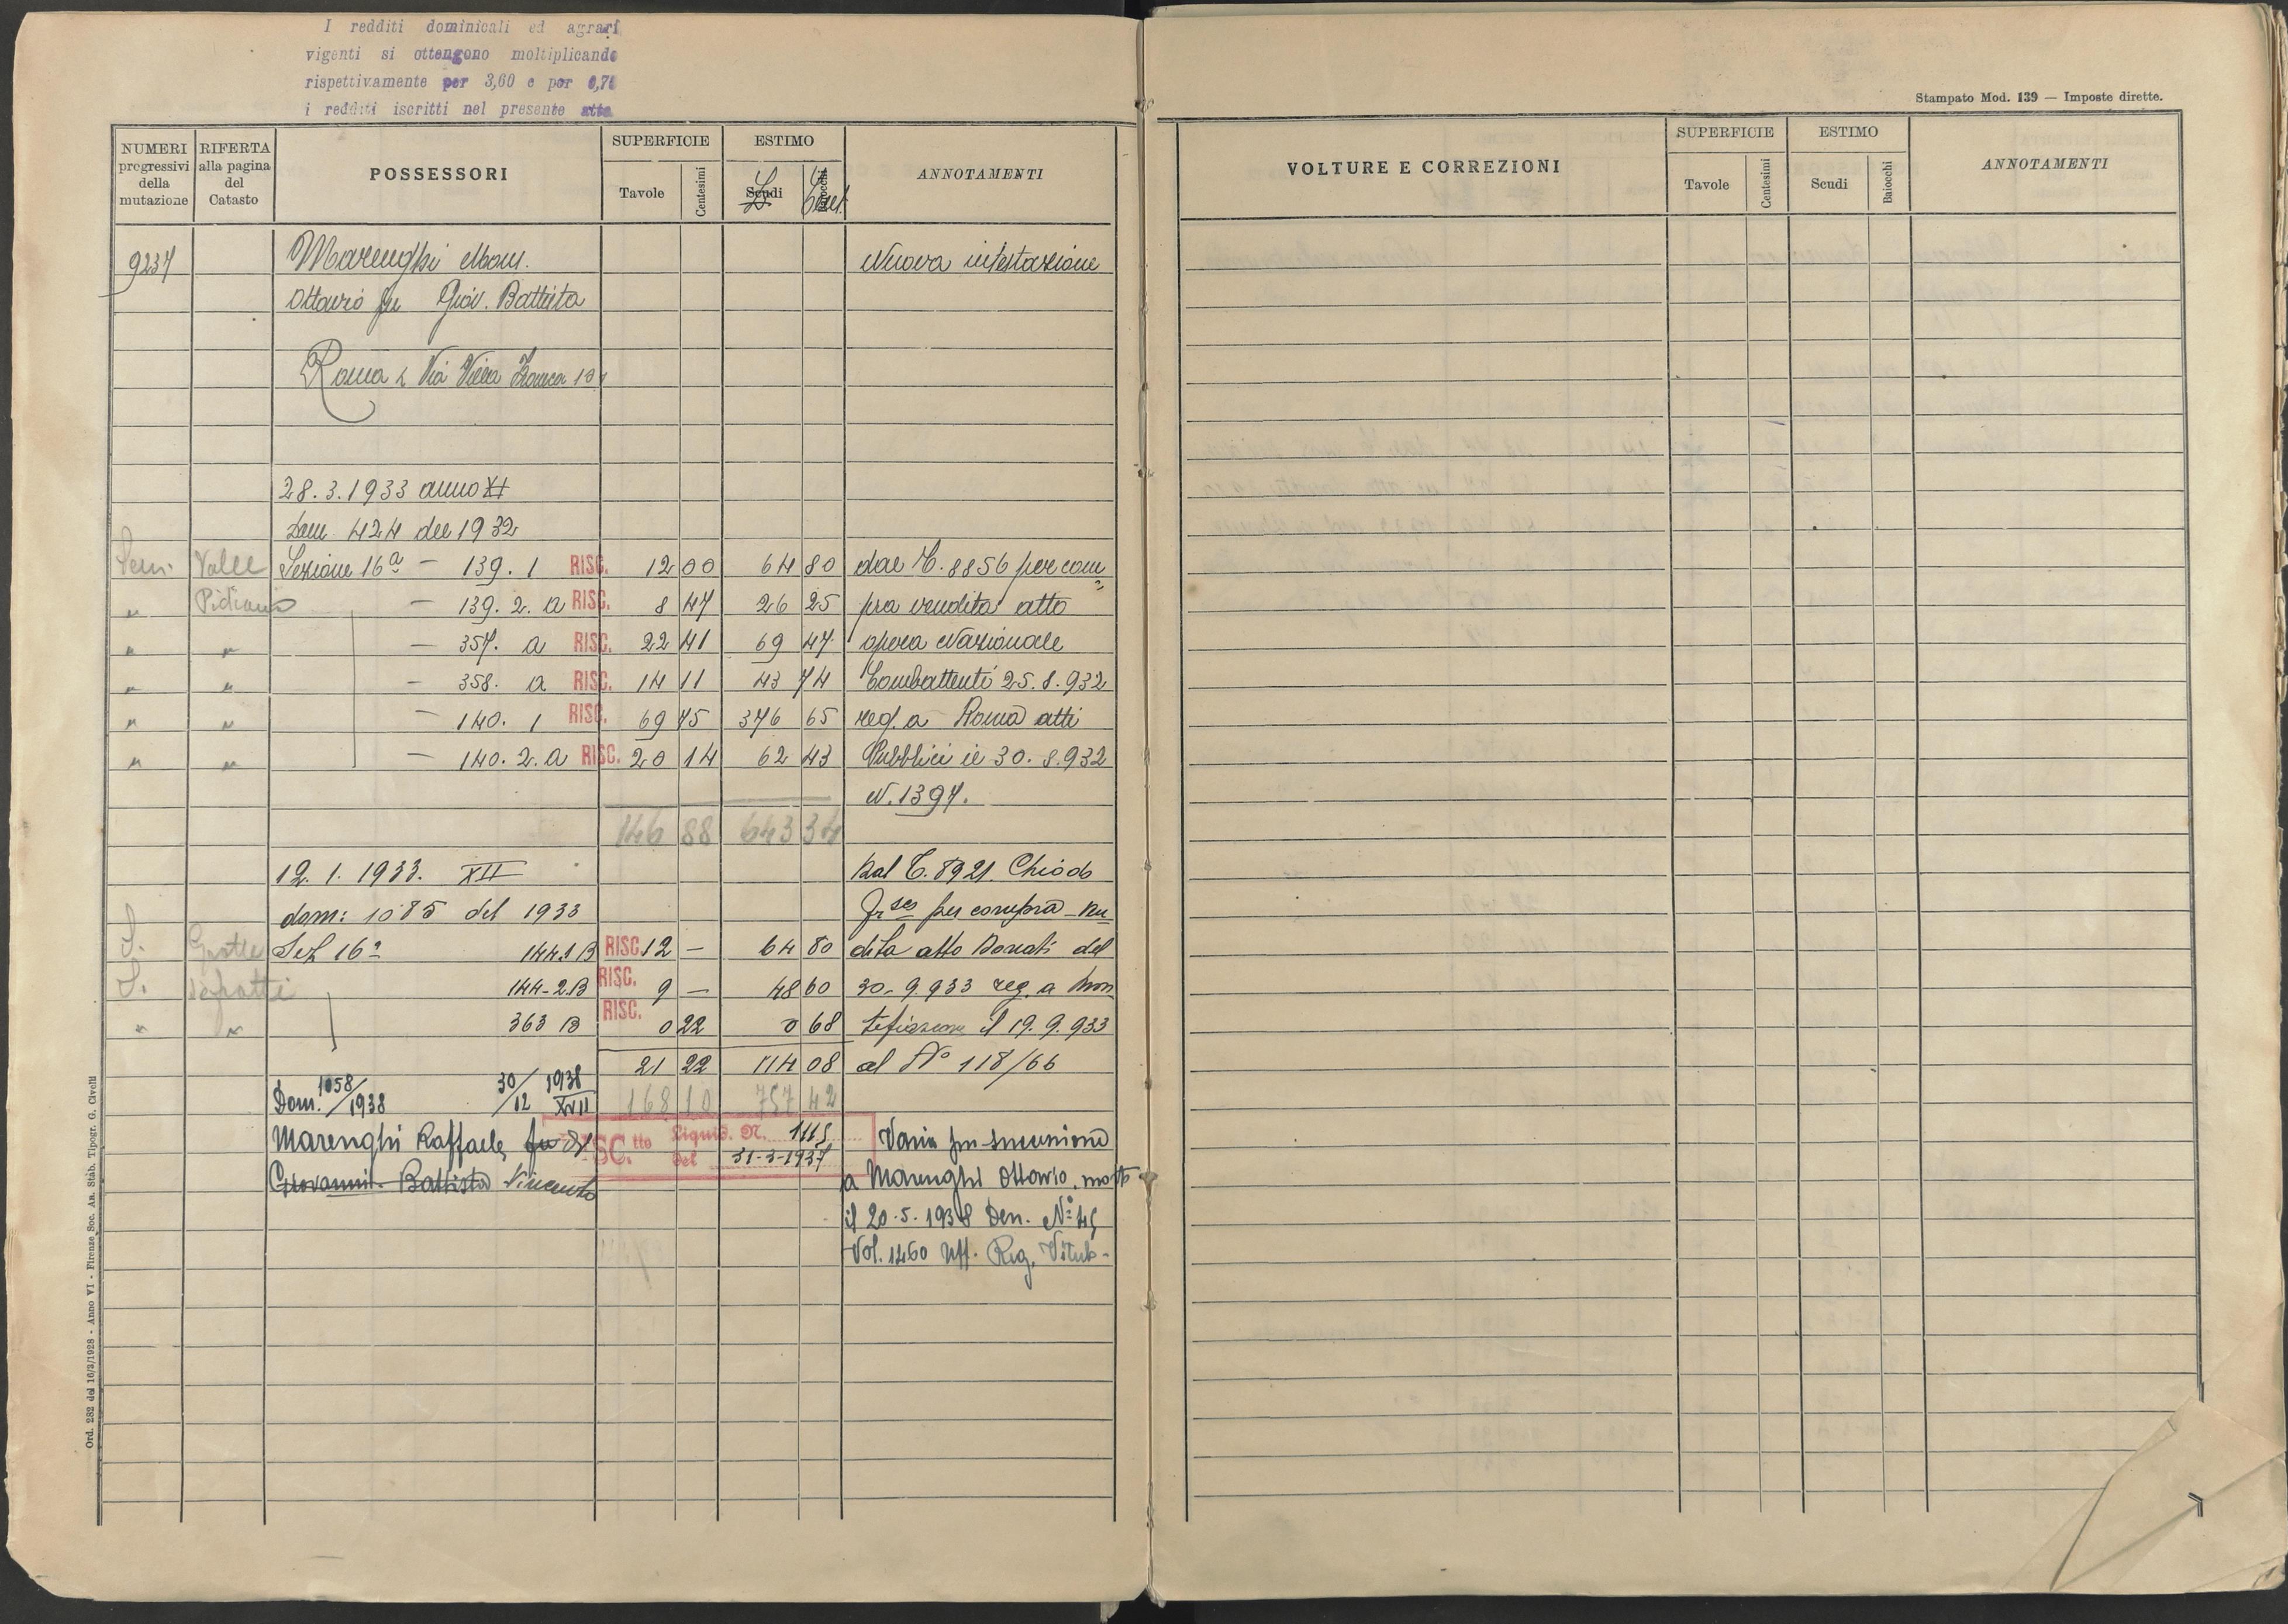 I redditi dominicali ed agrari
vigenti si ottengono moltiplicando
rispettivamente per 3,60 e per
i redditi iscritti nel presente atto
Stampato Mod. 139 — Imposte dirette.
NUMERI progressivi della mutazione
RIFERTA alla pagina del Catasto
POSSESSORI
SUPERFICIE
Tavole Centesimi
ESTIMO
Scudi Baiocchi
L. Cent.
ANNOTAMENTI
VOLTURE E CORREZIONI
SUPERFICIE
Tavole Centesimi
ESTIMO
Scudi Baiocchi
ANNOTAMENTI
9237 Marenghi Mons. Nuova intestazione
Ottavio fu Giov. Battista
Roma Via Villa
28.3.1933 anno XI
Dom 424 del 1932
Sem. Valle Sezione 16a — 139. 1 RISC. 12 00 64 80 dal C. 8856 per com=
" Pidiano — 139. 2. a RISC. 8 47 26 25 pra vendita atto
" " — 357. a RISC. 22 41 69 47 opera Nazionale
" " — 358. a RISC. 14 11 43 74 Combattenti 25.8.932
" " — 140. 1 RISC. 69 75 376 65 reg. a Roma atti
" " — 140. 2. a RISC. 20 14 62 43 Pubblici il 30.8.932
N. 1397.
146 88 643 34
12. 1. 1933. XII Dal C. 8921 Chiodo
dom: 1085 del 1933 per compra
S. Grotte Sez 16a 144.1 B RISC. 12 — 64 80 dita atto Donati del
S. 144-2.B RISC. 9 — 48 60 30-9.933 reg. a Mon
" " 363 B RISC. 0 22 0 68 tefiascone il 19.9.933
21 22 114 08 al No 118/66
Dom. 1058/1938 30/12 1938 XVII 168 10 757 42
Marenghi Raffaele fu di RISC.tto Liquid. N. 1115 Varia per successione
Giovanni Battista Vincenzo del 31-3-1937 a Marenghi Ottavio, morto
il 20.5.1938 Den. No 45
Vol. 1260 Uff. Reg. Viterb-
Ord. 282 del 16/3/1928 - Anno VI - Firenze Soc. An. Stab. Tipogr. G. Civelli